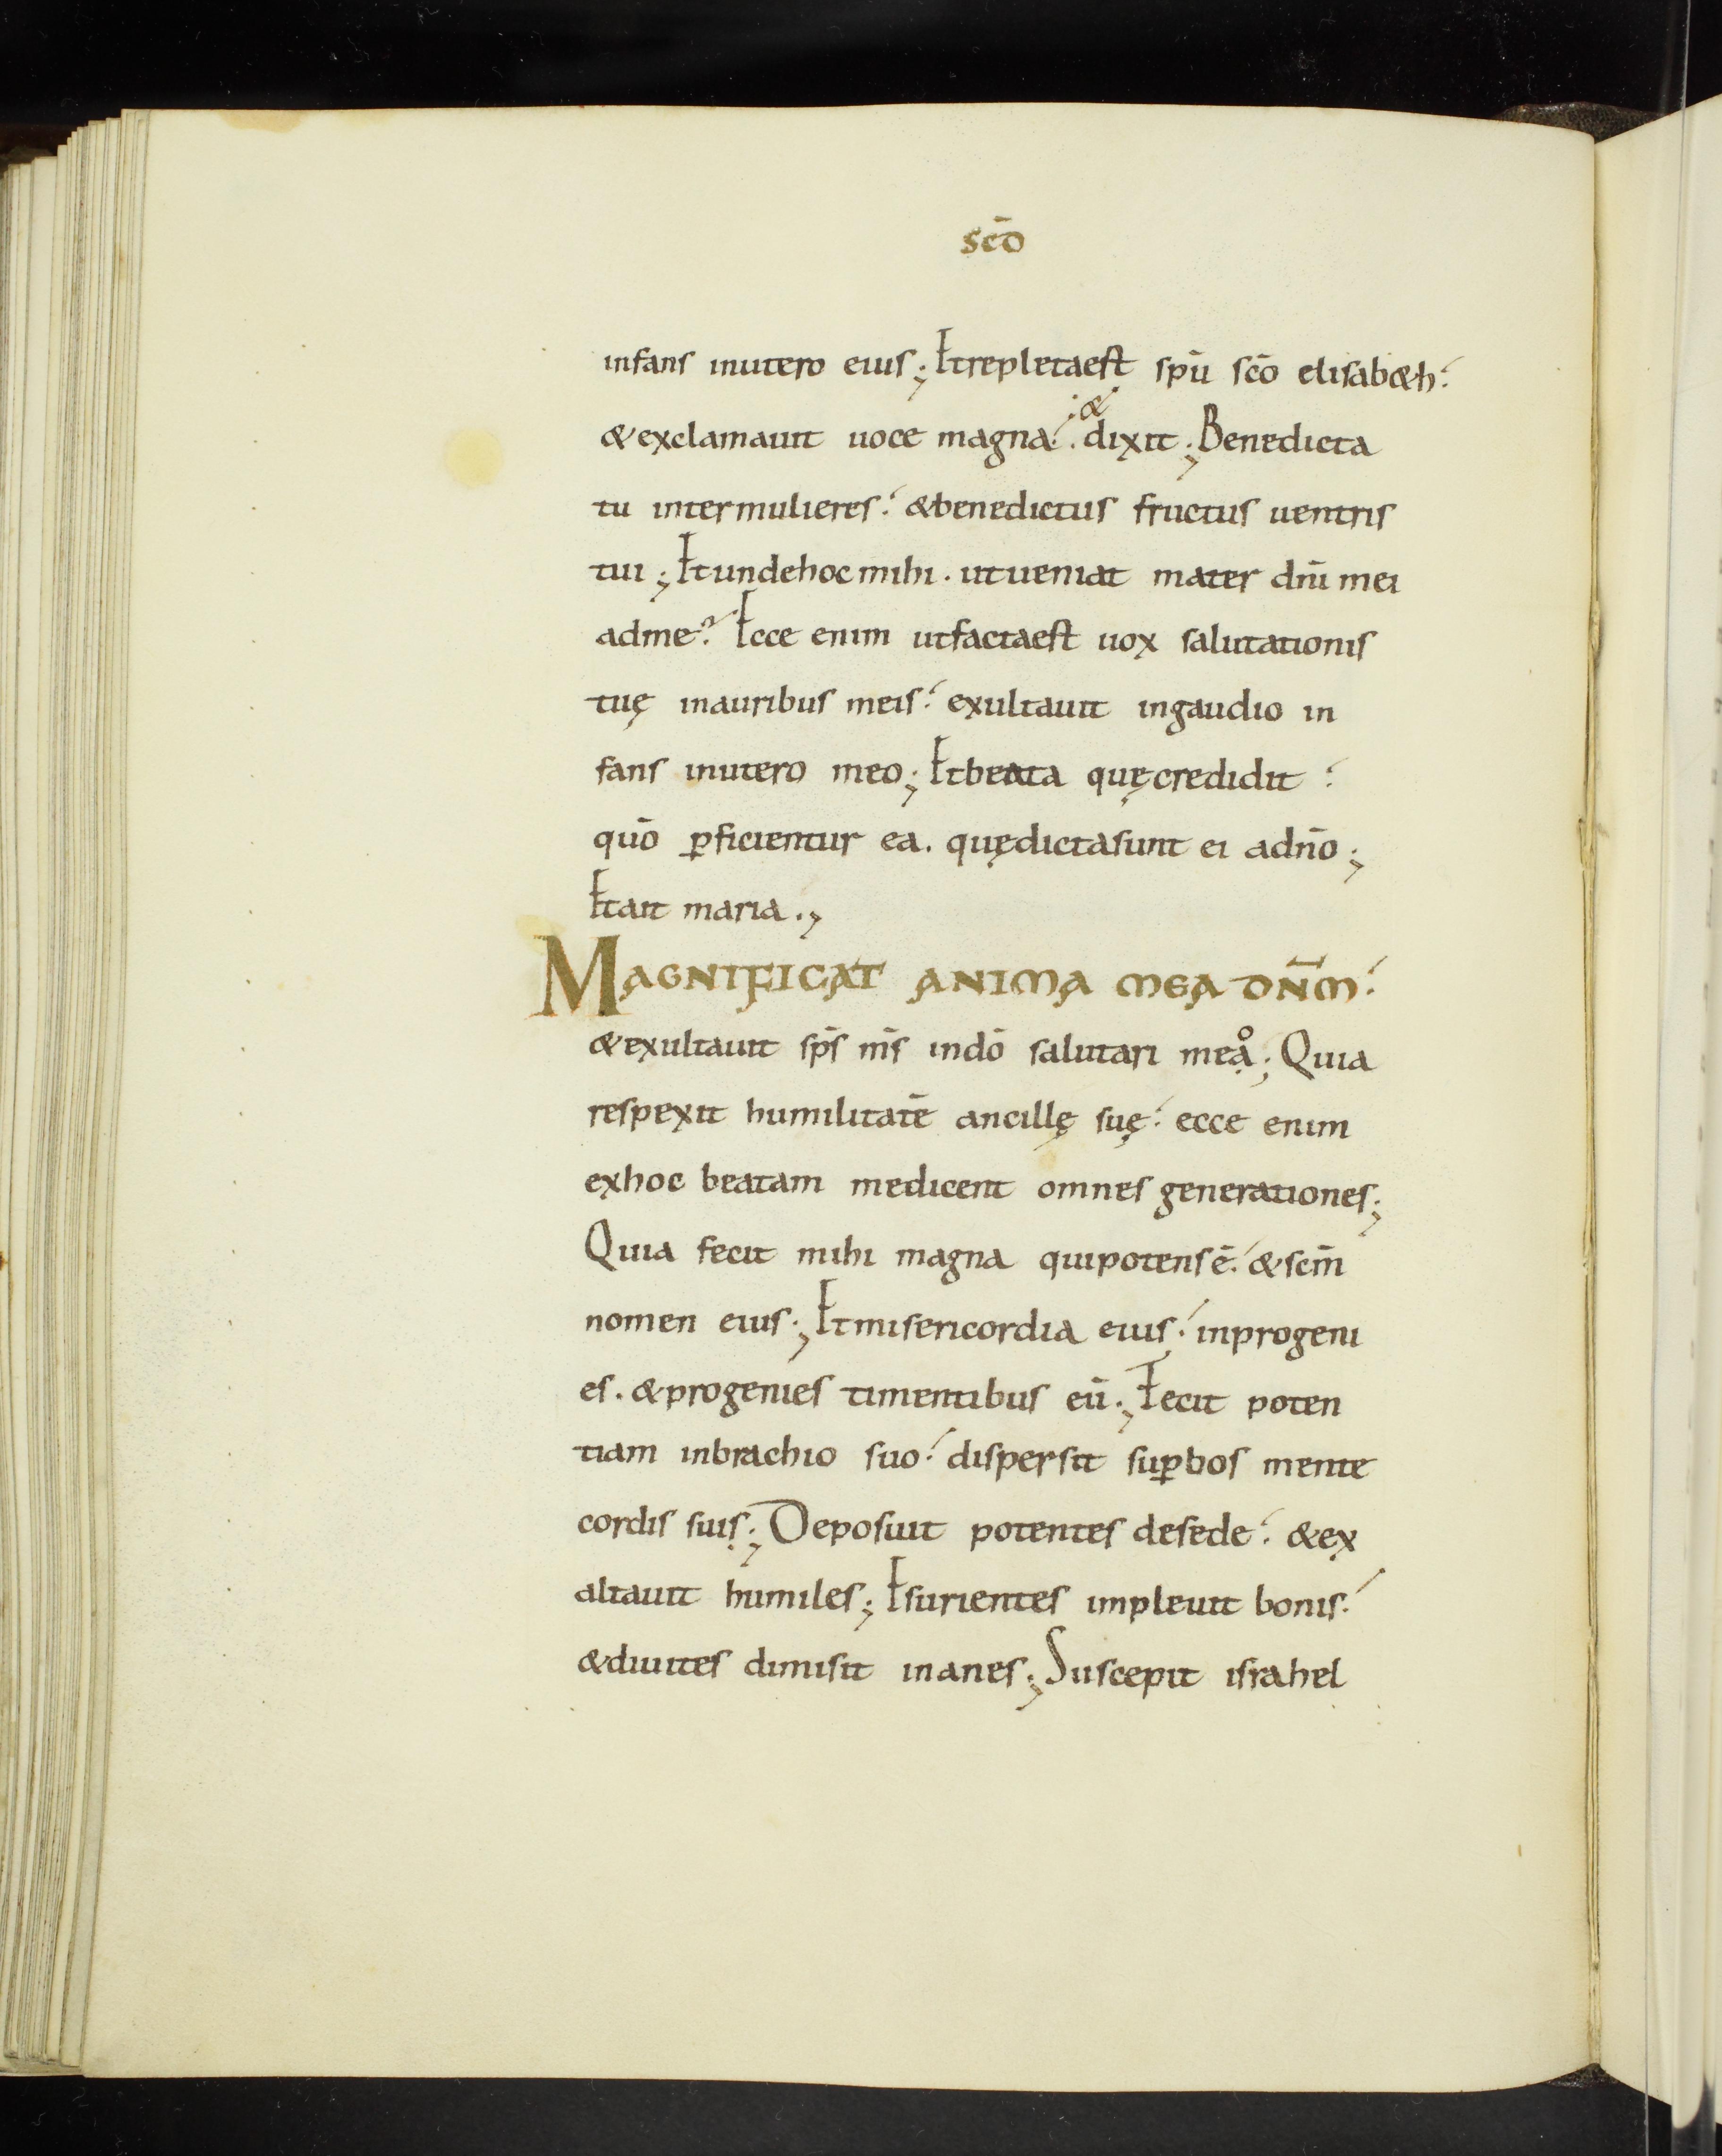 scō
infans inutero eius; Etrepletaest spū scō elisab&h:
&exclamauit uoce magna: & dixit; Benedicta
tu intermulieres: &benedictus fructus uentris
tui; Etundehoc mihi. utueniat mater dn̄i mei
adme? Ecce enim utfactaest uox salutationis
tuę inauribus meis: exultauit ingaudio in
fans inutero meo; Etbeata quęcredidit:
quō ꝑficientur ea. quędictasunt ei adn̄o;
Etait maria.,
MAGNIFICAT ANIMA MEA DN̄M:
&exultauit sp̄s m̄s indō salutari meạo; Quia
respexit humilitatē ancillę suę: ecce enim
exhoc beatam medicent omnes generationes;
Quia fecit mihi magna quipotensē: &scm̄
nomen eius; Etmisericordia eius: inprogeni
es. &progenies timentibus eū; Fecit poten
tiam inbrachio suo: dispersit suꝑbos mente
cordis suis; Deposuit potentes desede: &ex
altauit humiles; Esurientes impleuit bonis:
&diuites dimisit inanes; Suscepit israhel